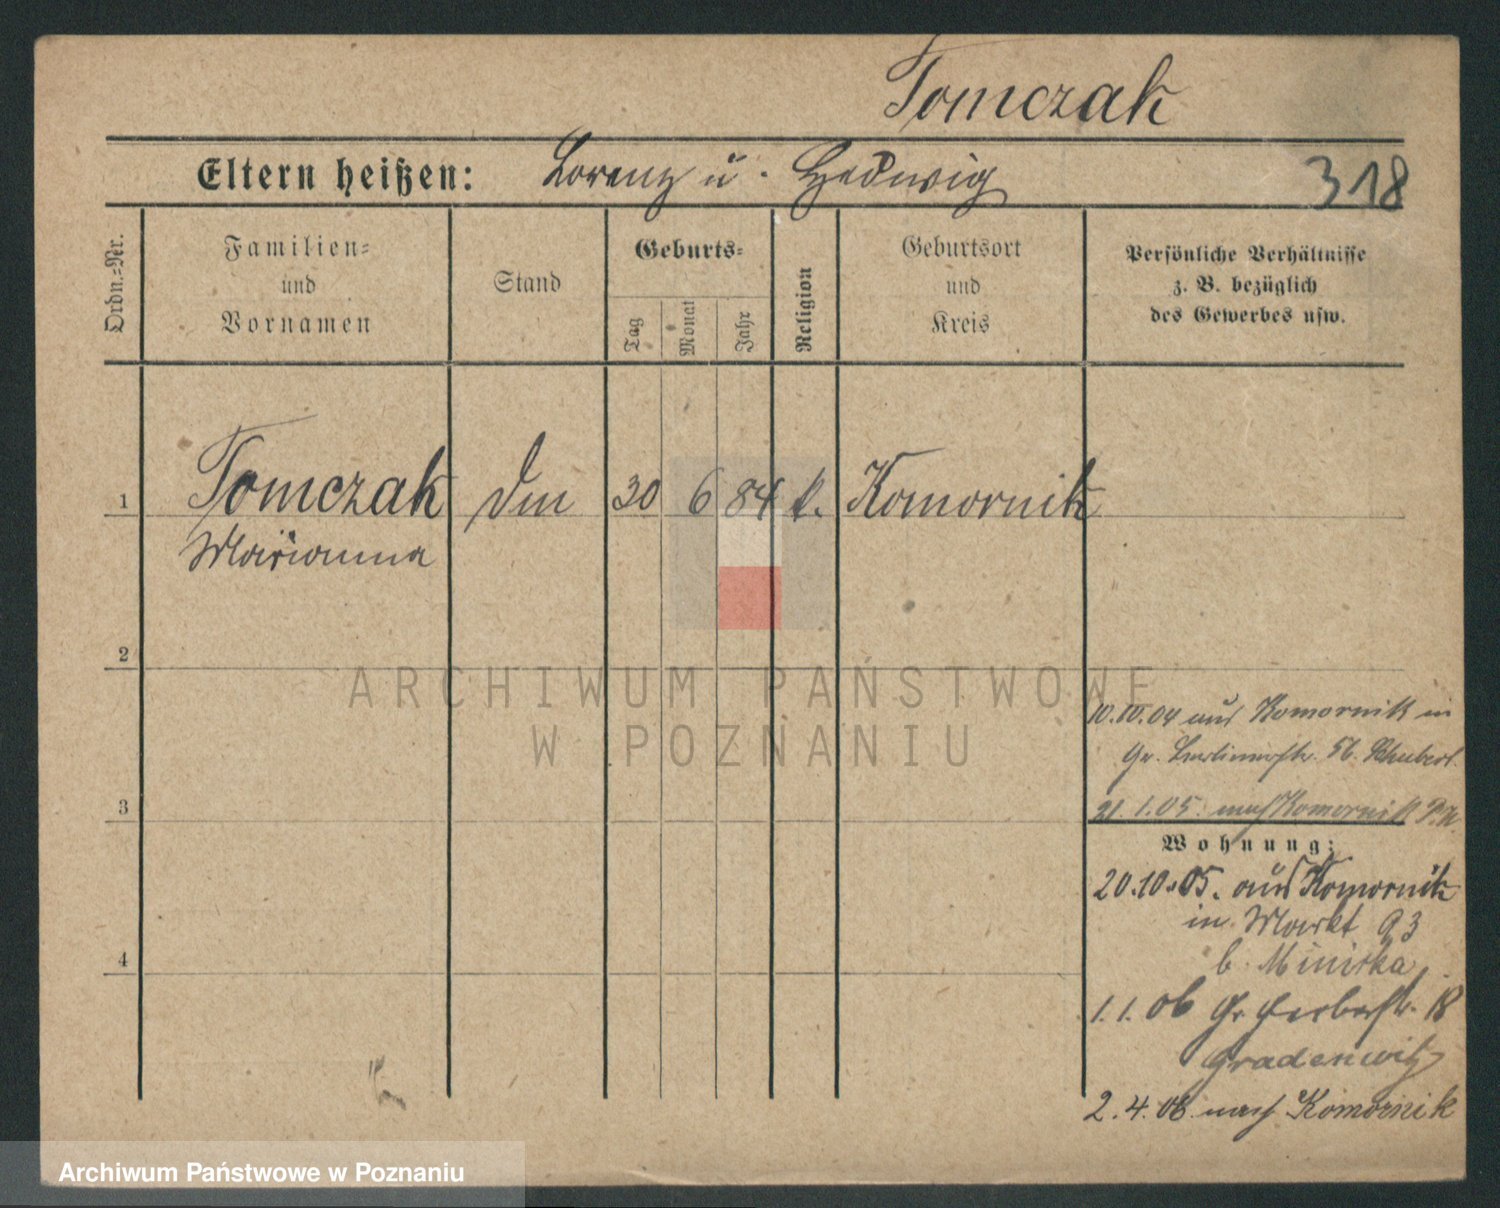 Tomczak
Eltern heißen: Lorenz u. Hedwig
318
Ordn.=Nr.
Familien=
und
Vornamen
Stand
Geburts=
Tag
Monat
Jahr
Religion
Geburtsort
und
Kreis
Persönliche Verhältnisse
z. B. bezüglich
des Gewerbes usw.
1
Tomczak
30 6 84 k. Komornik
Marianna
2
ARCHIWUM PAŃSTWOWE
W POZNANIU
10.IV.04 aus Komornik in
Gr. Berlinerstr. 56.
3
21.1.05. nach Komornik
Wohnung:
20.10.05. aus Komornik
in Markt 93
b.
4
1.1.06 Gr. Gerberstr. 18
Gradenwitz
2.4.06. nach Komornik
Archiwum Państwowe w Poznaniu